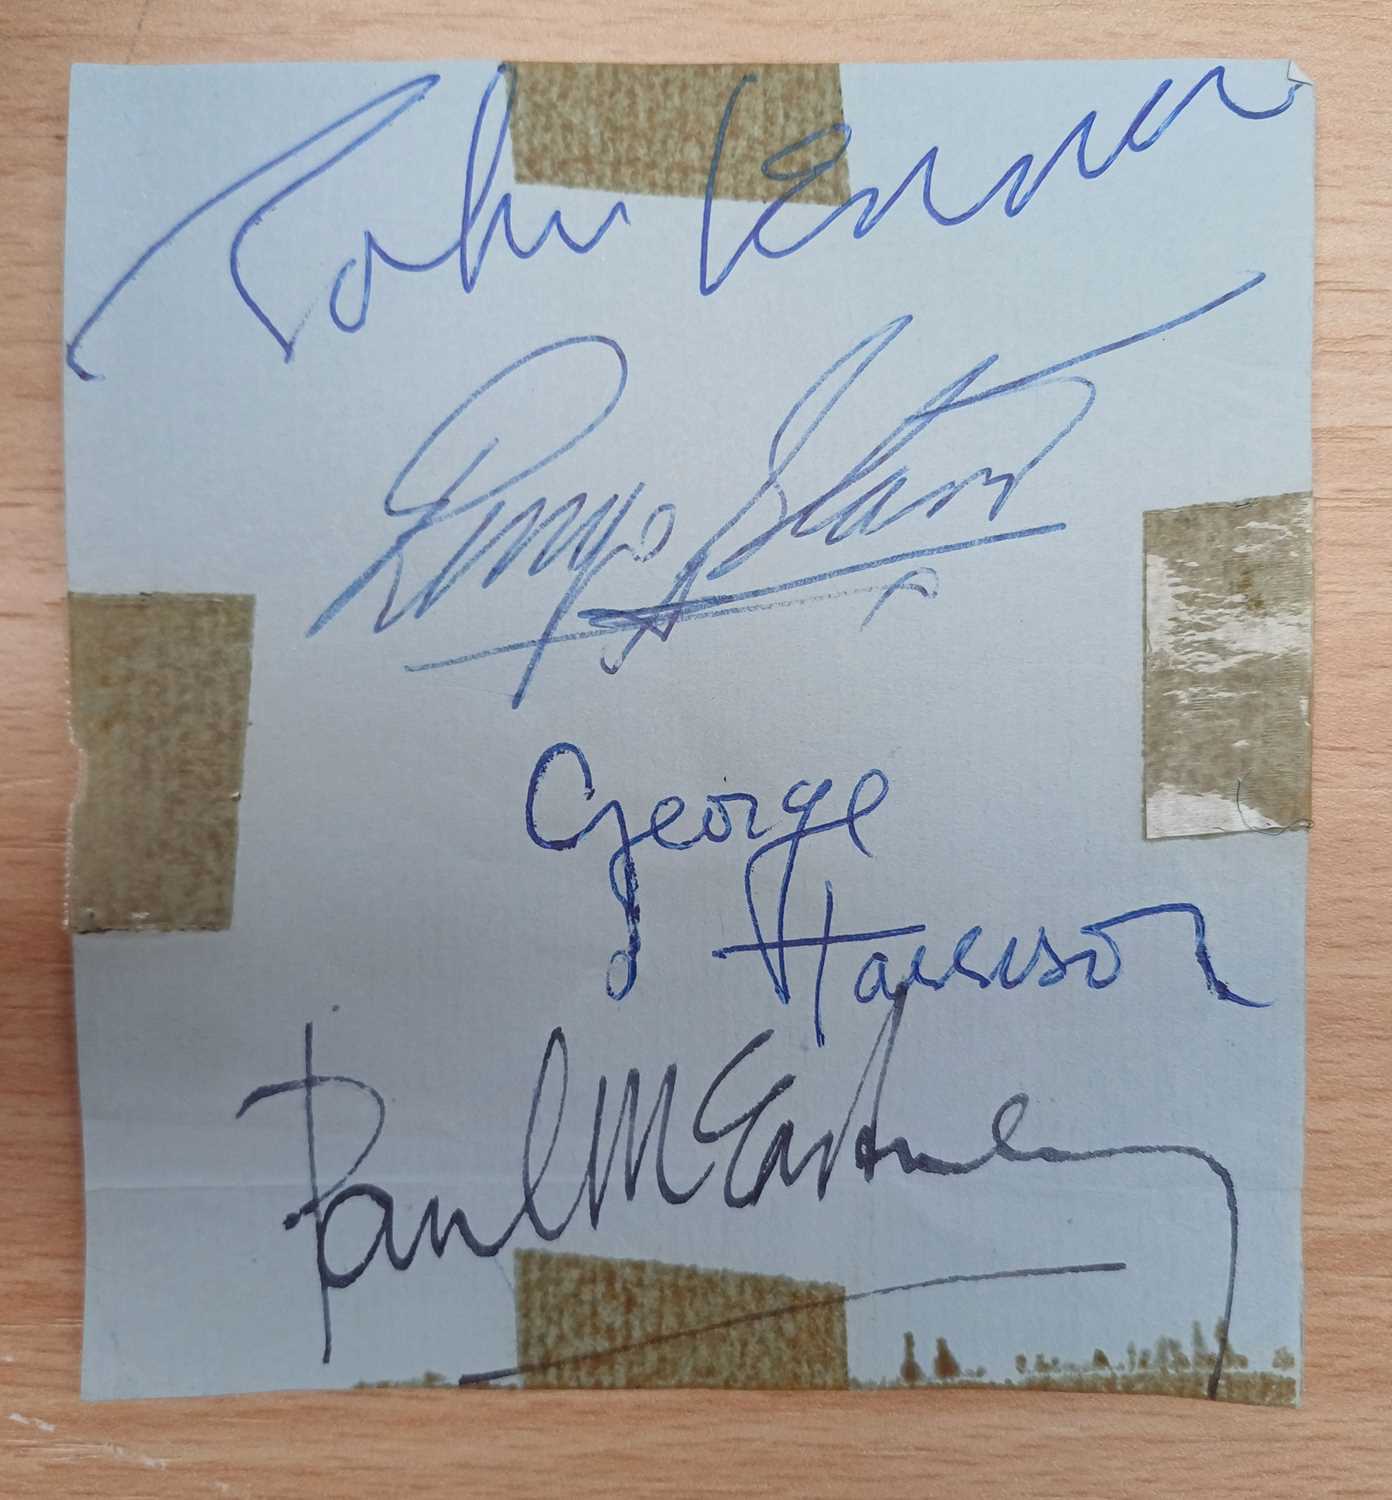 John Lennon
Ringo Starr
George
Harrison
Paul McCartney